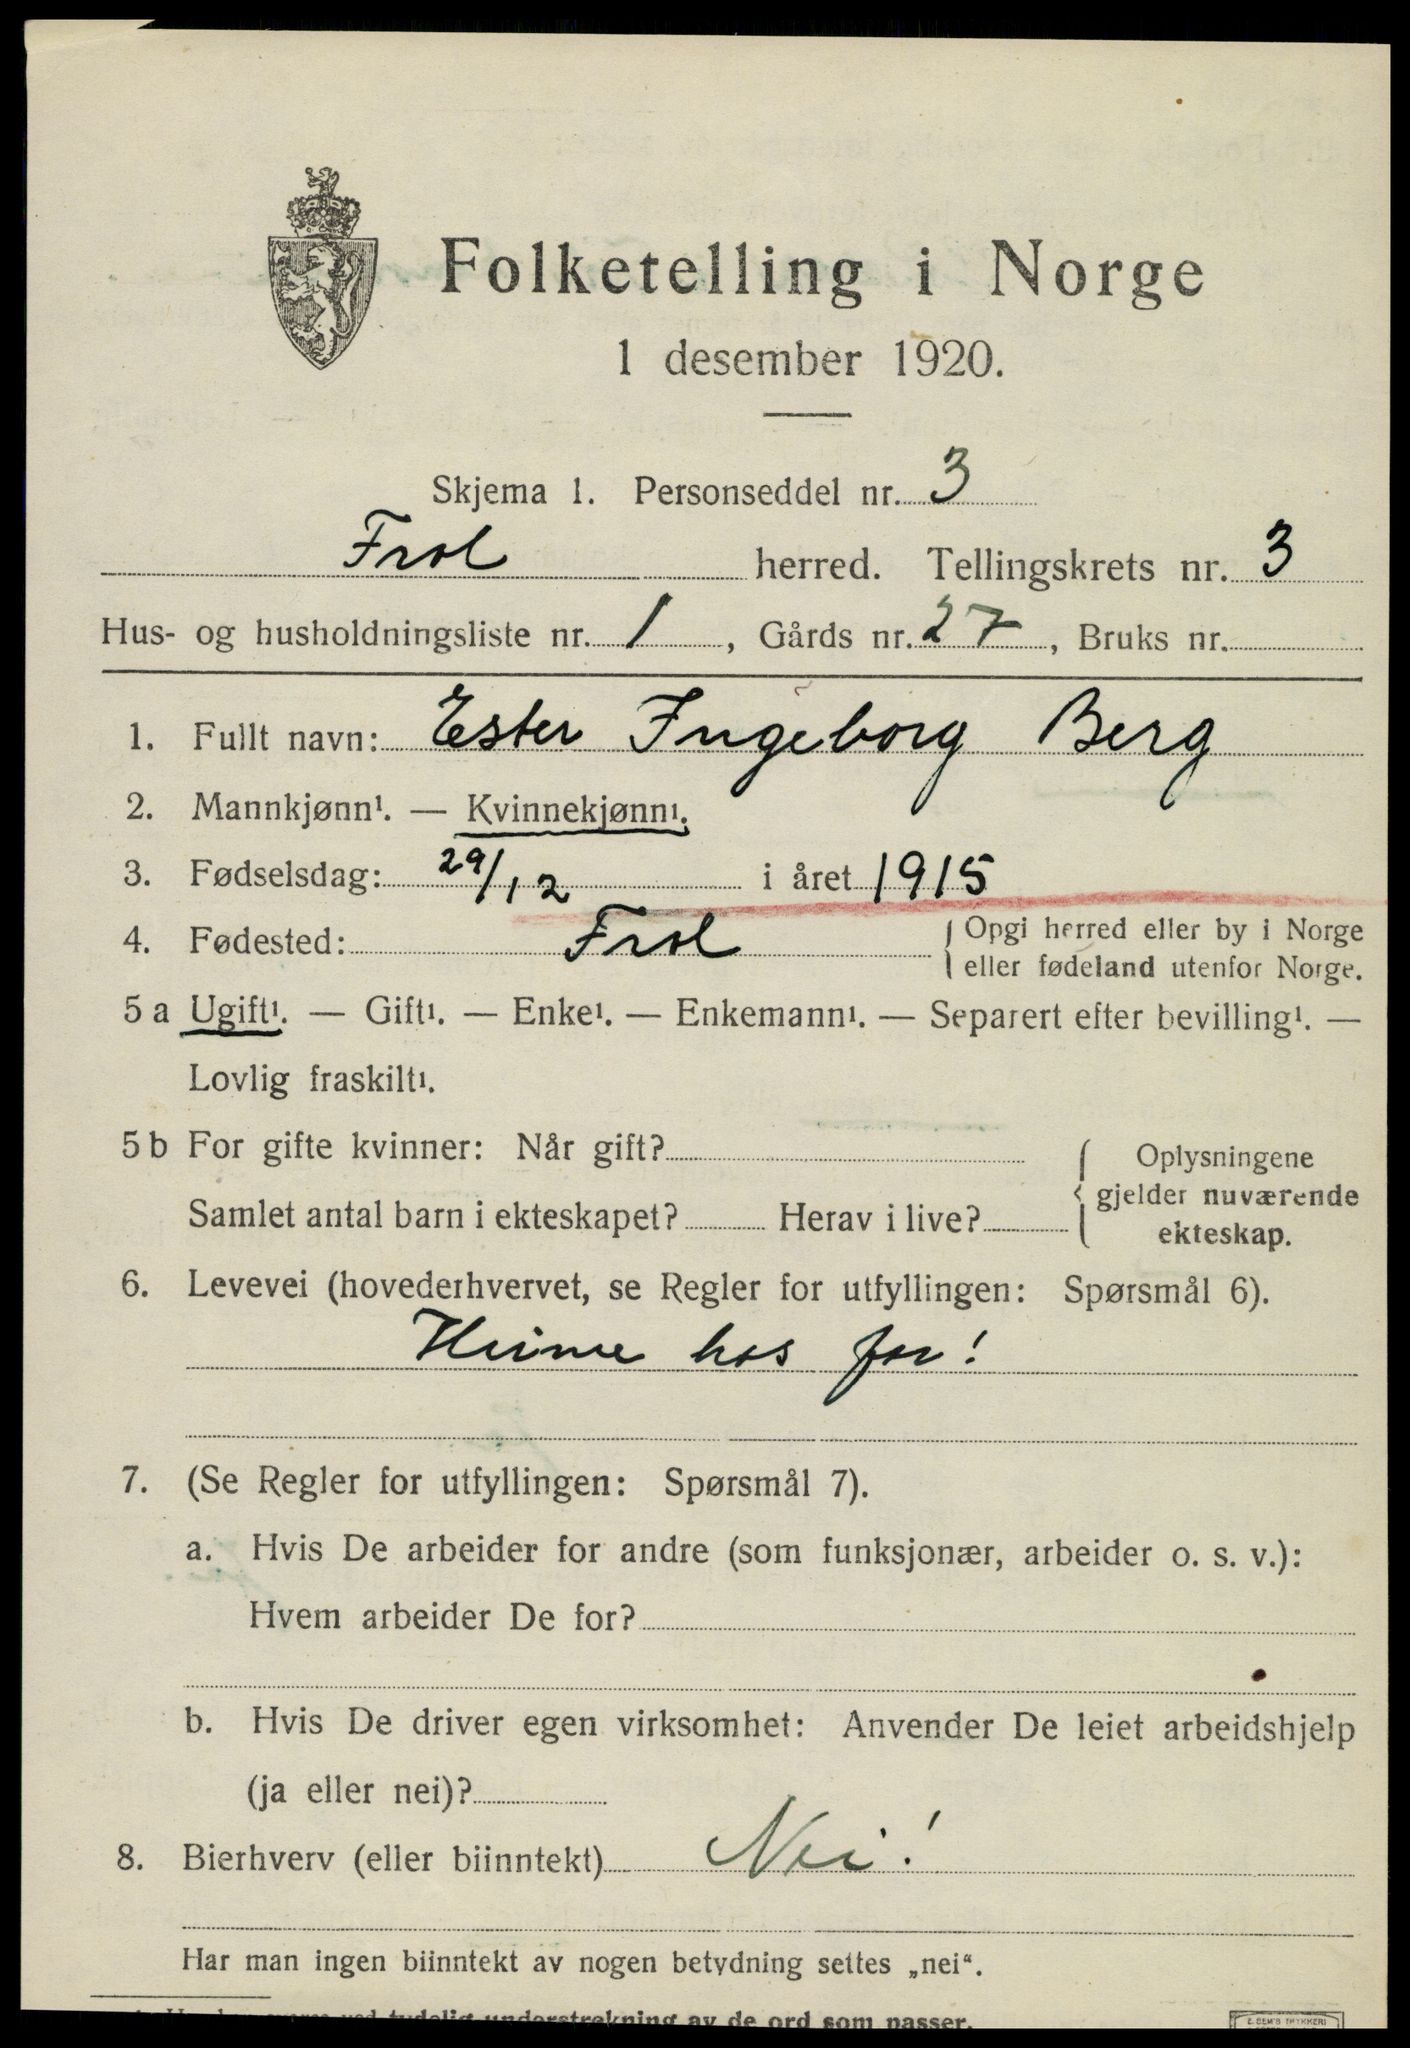 Folketelling i Norge
1 desember 1920.
Skjema 1. Personseddel nr. 3
Frol herred. Tellingskrets nr. 3
Hus- og husholdningsliste nr. 1, Gårds nr. 27, Bruks nr.
1. Fullt navn: Ester Ingeborg Berg
2. Mannkjønn¹. — Kvinnekjønn¹.
3. Fødselsdag: 29/12 i året 1915
4. Fødested: Frol { Opgi herred eller by i Norge
eller fødeland utenfor Norge.
5 a Ugift¹. — Gift¹. — Enke¹. — Enkemann¹. — Separert efter bevilling¹. —
Lovlig fraskilt¹.
5 b For gifte kvinner: Når gift? { Oplysningene
gjelder nuværende
Samlet antal barn i ekteskapet? Herav i live? ekteskap.
6. Levevei (hovederhvervet, se Regler for utfyllingen: Spørsmål 6).
Heime hos far!
7. (Se Regler for utfyllingen: Spørsmål 7).
a. Hvis De arbeider for andre (som funksjonær, arbeider o. s. v.):
Hvem arbeider De for?
b. Hvis De driver egen virksomhet: Anvender De leiet arbeidshjelp
(ja eller nei)?
8. Bierhverv (eller biinntekt) Nei!
Har man ingen biinntekt av nogen betydning settes „nei“.
ved tydelig understrekning av de ord som passer.